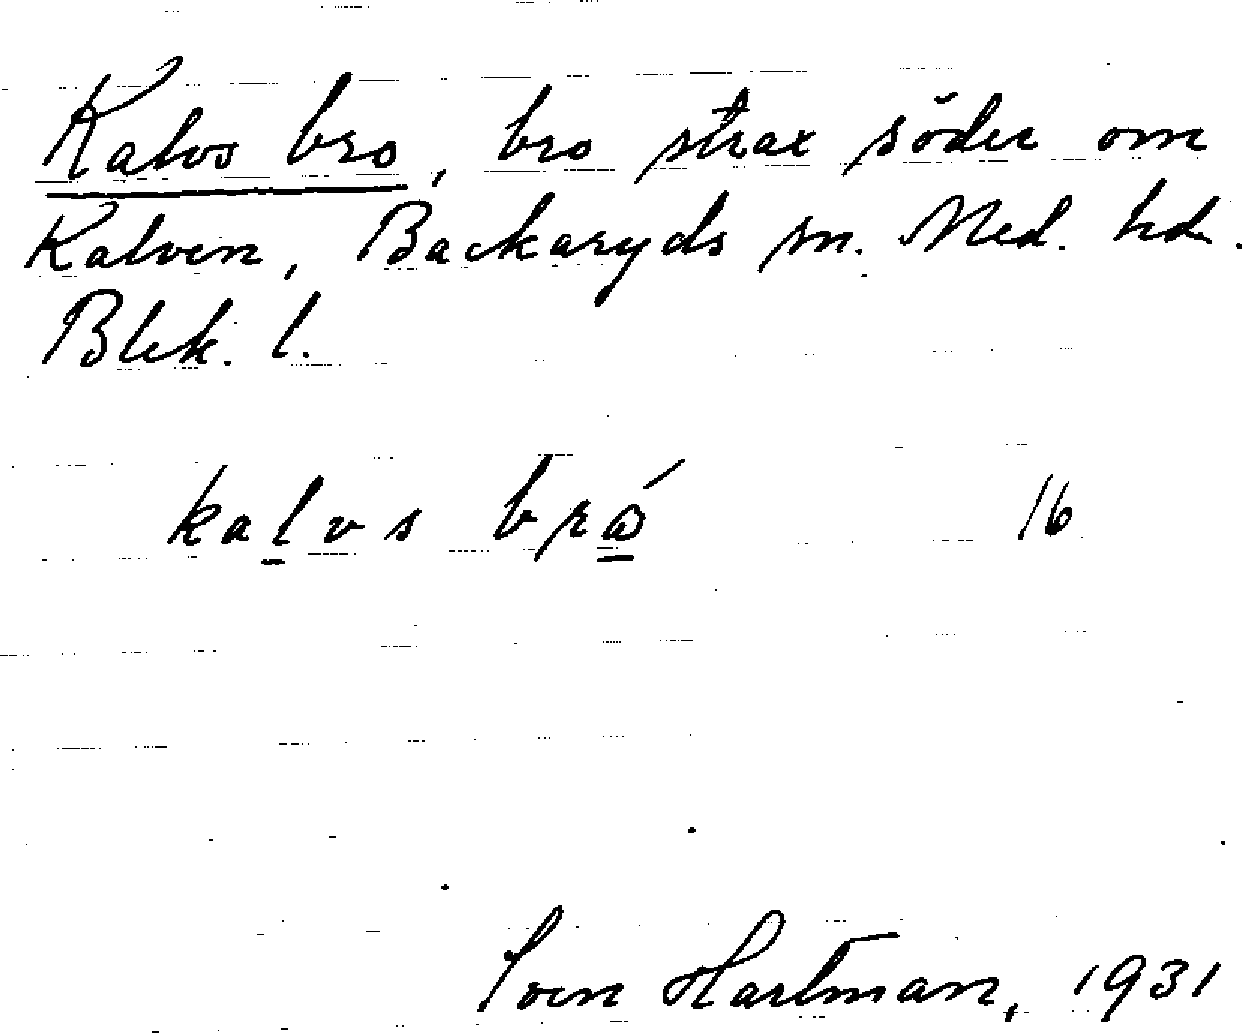 Kalvs bro, bro strax söder om
Kalven, Backaryds sn. Med. hd.
Blek. l.
kalvs bró 16
Sven Hartman, 1931